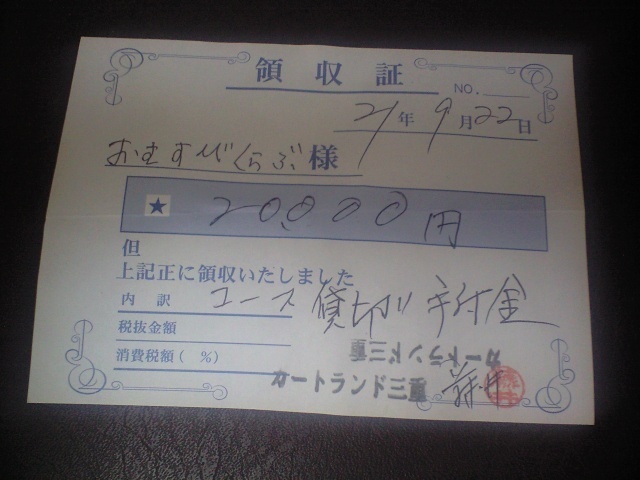 領収証
NO.
21年9月22日
おむすびくらぶ様
★ 20,000円
但
上記正に領収いたしました
内訳 コース貸切り手付金
税抜金額
消費税額( %)
カートランド三重
カートランド三重 藤井